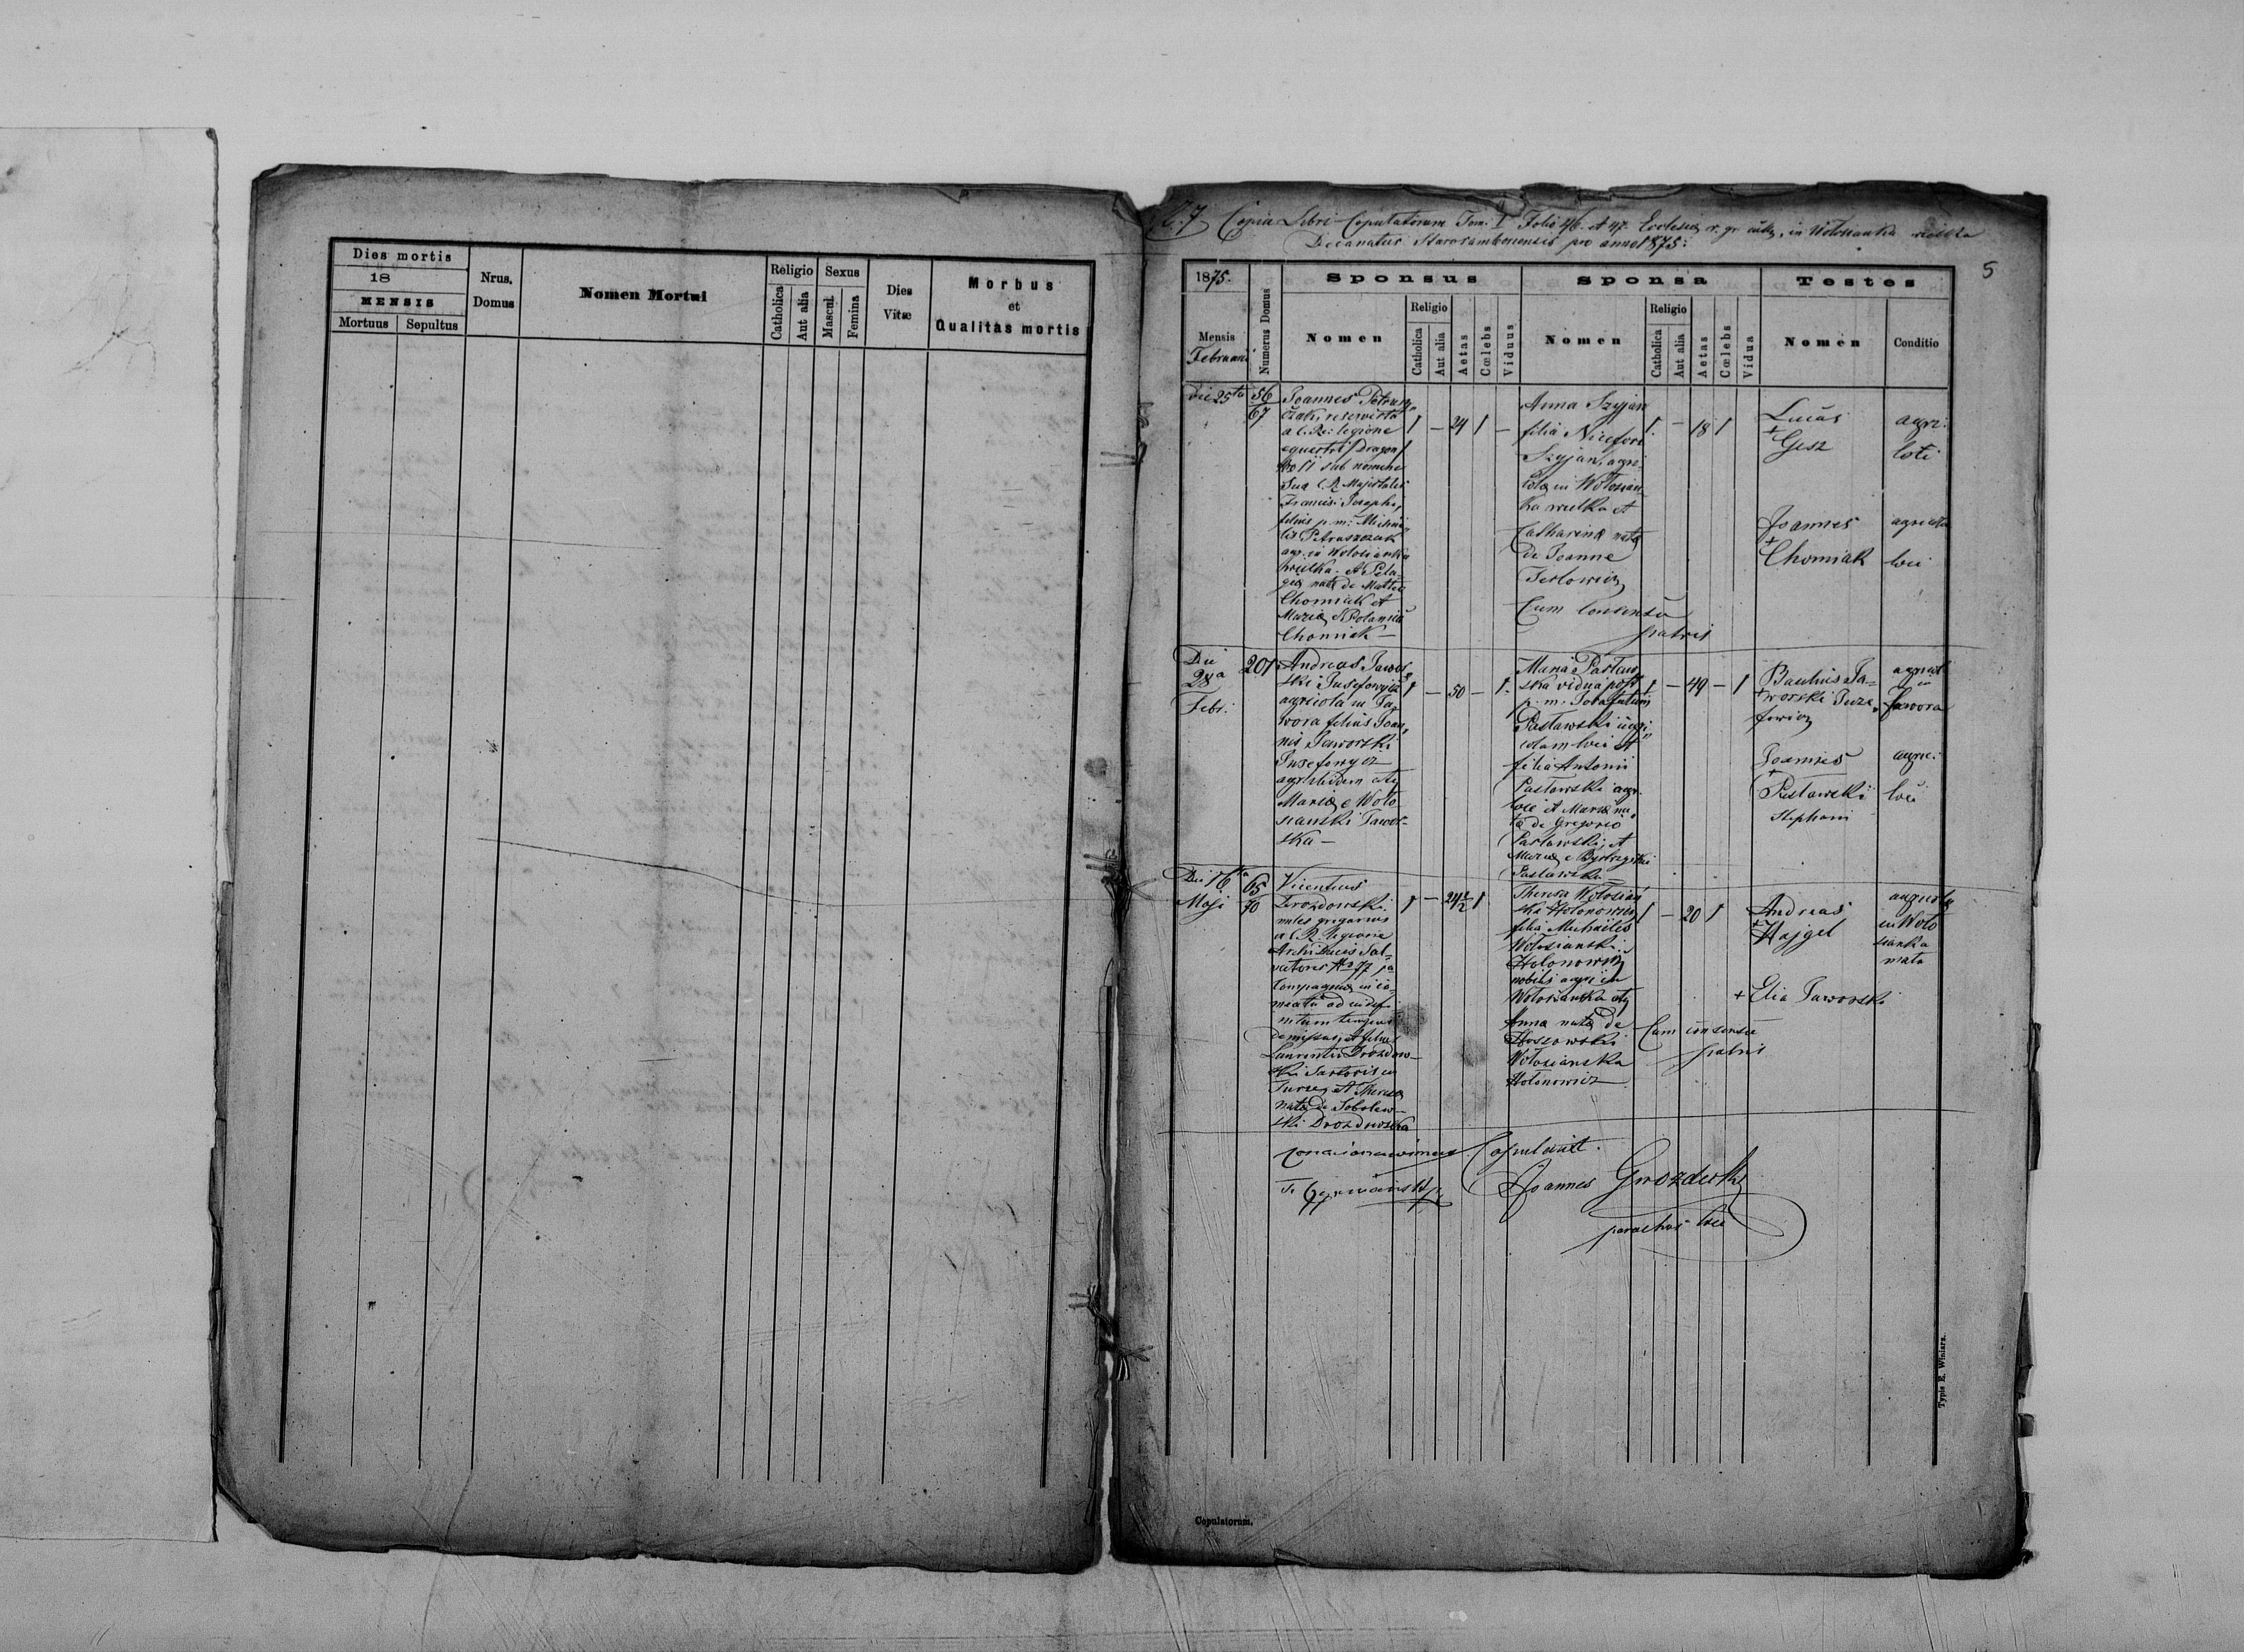 Dies mortis
18
MENSIS
Mortuus Sepultus
Nrus.
Domus
Nomen Mortui
Religio
Catholica
Aut alia
Sexus
Mascul.
Femina
Dies
Vitæ
Morbus
et
Qualitas mortis
Copia Libri Copulatorum Tom: I Folio 46. et 47. Ecclesiæ r. gr. in Wołosianka
Decanatus Starosamboriensis pro anno 1875:
5
1875.
Mensis
Februarii
Numerus Domus
Sponsus
Nomen
Religio
Catholica
Aut alia
Aetas
Cœlebs
Viduus
Sponsa
Nomen
Religio
Catholica
Aut alia
Aetas
Cœlebs
Vidua
Testes
Nomen
Conditio
Die 25ta
56
67
Joannes Petrusz„
czak,
a C. R. legione
equestri /Dragon/
No 11 sub nomine
Suæ C. R. Majestatis
Francisci Josephi,
filius p. m: Michae„
lis Petruszczak
agr. in Wołosianka
wielka et Pela„
giæ natæ de Matteo
Chomiak et
Maria
Chomiak —
1 — 24 1 —
Anna Szyjan
filia Nicefori
Szyjan, agri„
colæ in Wołosian„
ka wielka et
Catharinæ natæ
de Joanne
Terlowicz
Cum consensu
patris
1 — 18 1
Lucas
+
Gesz
agri:
loci
Joannes
+
Chomiak
agricola
loci
Die
28a
Febr:
201
Andreas Jawor„
ski Jusefowycz
agricola in Ja„
wora filius Joan„
nis Jaworski
Jusefowycz
agr. ibidem atq
Mariæ e Woło„
sianski Jawor„
ska —
1 — 50 — 1.
Maria Pasław„
ska vidua post
p. m.
Pasławski agri„
colam loci et
filia Antonii
Pasławski agr.
loci et Mariæ na„
tæ de Gregorio
Pasławski et
Maria e Bystrzycki
Pasławska
1 — 49 — 1
Basilius Ja„
+
worski Juze„
fowicz
agricol
in
Jawora
Joannes
+
Pasławski
Stephani
agric:
loci
Die 16ta
Maji
65
70
Vicentius
Drozdowski
miles gregarius
a C. R. legione
Archiducis Sal„
vatoris No 77
Compagniæ in co„
meatu ad indefi„
nitum tempus
dimissus, et filius
Laurentii Drozdow„
ski Sartoris in
Turze, et Theresæ
natæ de Sobolew„
ski Drozdowska
1 — 24½ 1
Theresa Wołosian„
ska Hołonowicz
filia Michaelis
Wołosianski
Hołonowicz
nobilis agri: in
Wołosianka atq
Anna natæ de
Hoszowski
Wołosianska
Hołonowicz
1 — 20 1
Cum consensu
patris
Andreas
+
Hajgel
agricola
in Woło
sianka
mała
+ Elia Jaworski
Copulavit.
Joannes Gwozdecki
parochus loci
Typis E. Winiarz.
Copulatorum.